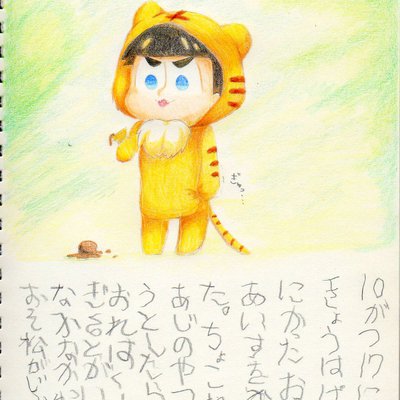 ぎゅっ…
10がつ17に
きょうはげ
にかったお
あいすを
た。ちょこれ
あじのやつ
うとしたら
おれはくし
ぎるとがい
なかなか
おそ松がじ